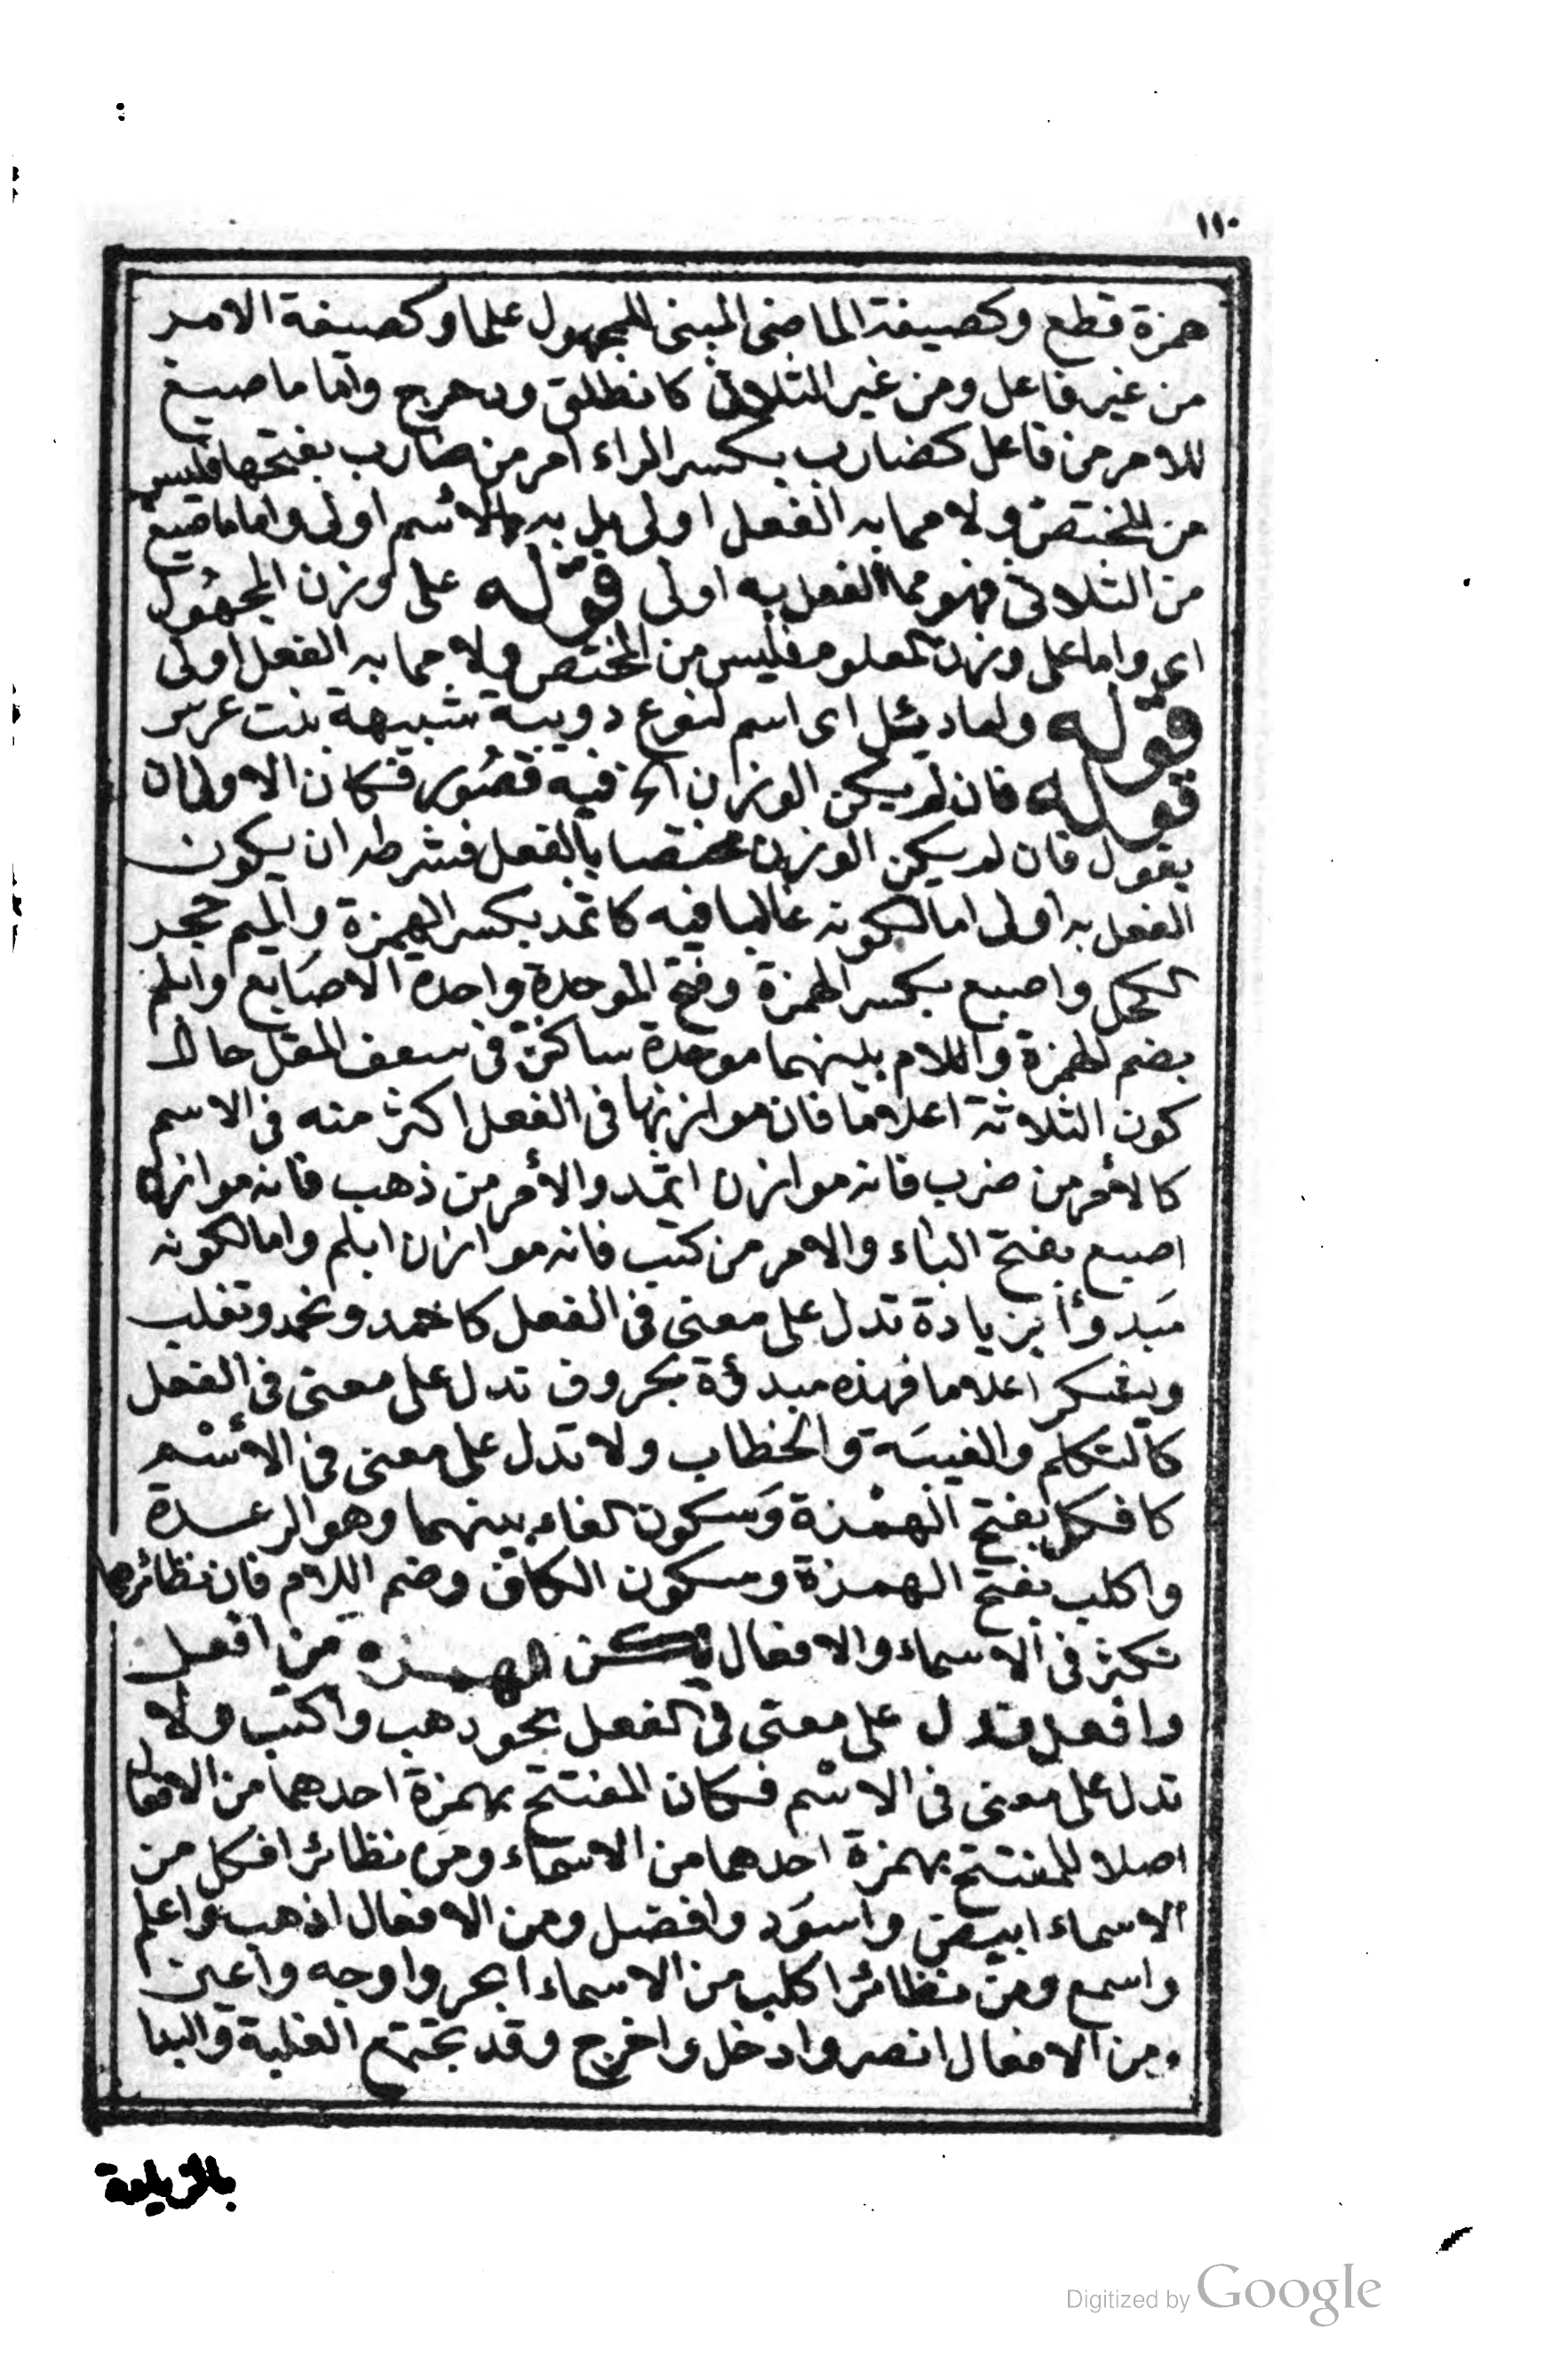 ١١٠
همزة قطع وكصيغة الماضى المبنى للمجهول علما وكصيغة الامر
من غير فاعل ومن غير الثلاثى كانطلق ودحرج وأما ما صيغ
للامر من فاعل كضارب بكسر الراء امر من ضارب بفتحها فليس
من المختص ولا مما به الفعل اولى بل به الاسم اولى واما ما صيغ
من الثلاثى فهو مما الفعل به اولى قوله على وزن المجهول
اى واما على وزن المعلوم فليس من المختص ولا مما به الفعل اولى
قوله ولما دئل اى اسم لنوع دويبة شبيهة بنت عرس
قوله فان لم يكن الوزن الخ فيه قصور فكان الاولى ان
يقول فان لم يكن الوزن مختصا بالفعل فشرطه ان يكون
الفعل به اولى اما لكونه غالبا فيه كاثمد بكسر الهمزة والميم حجر
الكحل واصبع بكسر الهمزة وفتح الموحدة واحدة الاصابع وابلم
بضم الهمزة واللام بينهما موحدة ساكنة فى سعف المقل حال
كون الثلاثة اعلاما فان موازنها فى الفعل اكثر منه فى الاسم
كالأمر من ضرب فانه موازن اثمد والأمر من ذهب فانه موازن
اصبع بفتح الباء والامر من كتب فانه موازن ابلم واما لكونه
مبدوأ بزيادة تدل على معنى فى الفعل كاحمد ونحمد وتغلب
ويشكر اعلاما فهذه مبدؤة بحروف تدل على معنى فى الفعل
كالتكلم والغيبة والخطاب ولا تدل على معنى فى الأسم
كافكل بفتح الهمزة وسكون الفاء بينهما وهو الرعدة
واكلب بفتح الهمزة وسكون الكاف وضم اللام فان نظائرها
تكثر فى الاسماء والافعال لكن الهمزة من افعل
وافعل تدل على معنى فى الفعل نحو ذهب واكتب ولا
تدل على معنى فى الاسم فكان المفتتح بهمزة احدهما من الافعال
اصلا للمفتتح بهمزة احدهما من الاسماء ومن نظائر افكل من
الاسماء ابيض واسود وافضل ومن الافعال اذهب واعلم
واسمع ومن نظائر اكلب من الاسماء ابحر واوجه واعين
ومن الافعال انصر وادخل واخرج وقد تجتمع الغلبة والبدا
بالزيادة
Digitized by Google